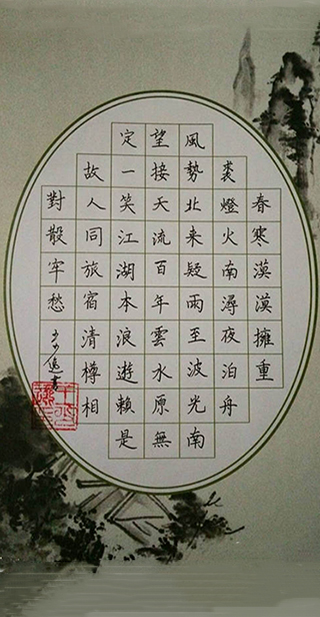 春寒漠漠擁重
裘燈火南潯夜泊舟
風勢北来疑雨至波光南
望接天流百年雲水原無
定一笑江湖本浪遊賴是
故人同旅宿清樽相
對散牢愁